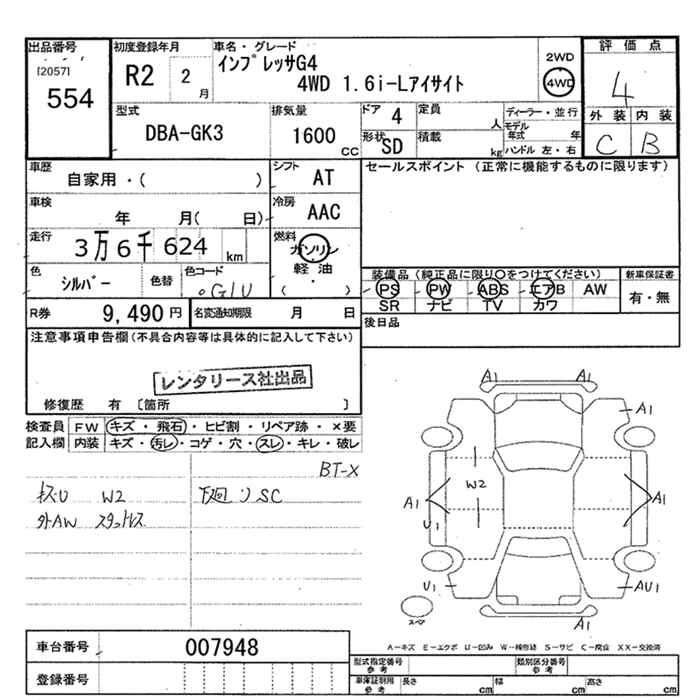 出品番号
[2057]
554
初度登録年月
R2 2 月
車名・グレード
インプレッサG4
4WD 1.6i-Lアイサイト
2WD
4WD
評価点
4
外装 内装
C B
型式
DBA-GK3
排気量
1600 CC
ドア 4
定員 人
形状 SD
積載 kg
ディーラー・並行
モデル年式 年
ハンドル 左・右
車歴
自家用・( )
シフト AT
セールスポイント (正常に機能するものに限ります)
車検 年 月( 日)
冷房 AAC
走行 3万6千624 km
燃料 ガソリン
軽油
・
( )
色 シルバー 色替
色コード G1U
装備品(純正品に限り○をつけてください)
新車保証書
PS PW ABS エアB AW
SR ナビ TV カワ
有・無
R券 9,490円
名変通知期限 月 日
後日品
注意事項申告欄(不具合内容等は具体的に記入して下さい)
レンタリース社出品
修復歴 有 〔箇所 〕
検査員記入欄
FW キズ・飛石・ヒビ割・リペア跡・×要
内装 キズ・汚レ・コゲ・穴・スレ・キレ・破レ
BT-X
キズU W2
下廻リSC
外AW スタットレス
A1 A1
A1
W2
A1 A1
U1
U1 AU1
スペア
A1
A－キズ E－エクボ U－凹み W－補修跡 S－サビ C－腐食 XX－交換済
車台番号 007948
登録番号
型式指定番号 参考
類別区分番号 参考
車庫証明用 参考
長さ cm 幅 cm 高さ cm